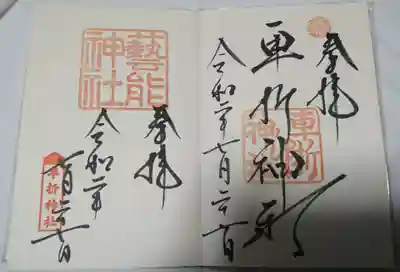 奉拝
車折神社
車折神社
令和二年七月
藝能神社
奉拝
令和二年
七月
車折神社